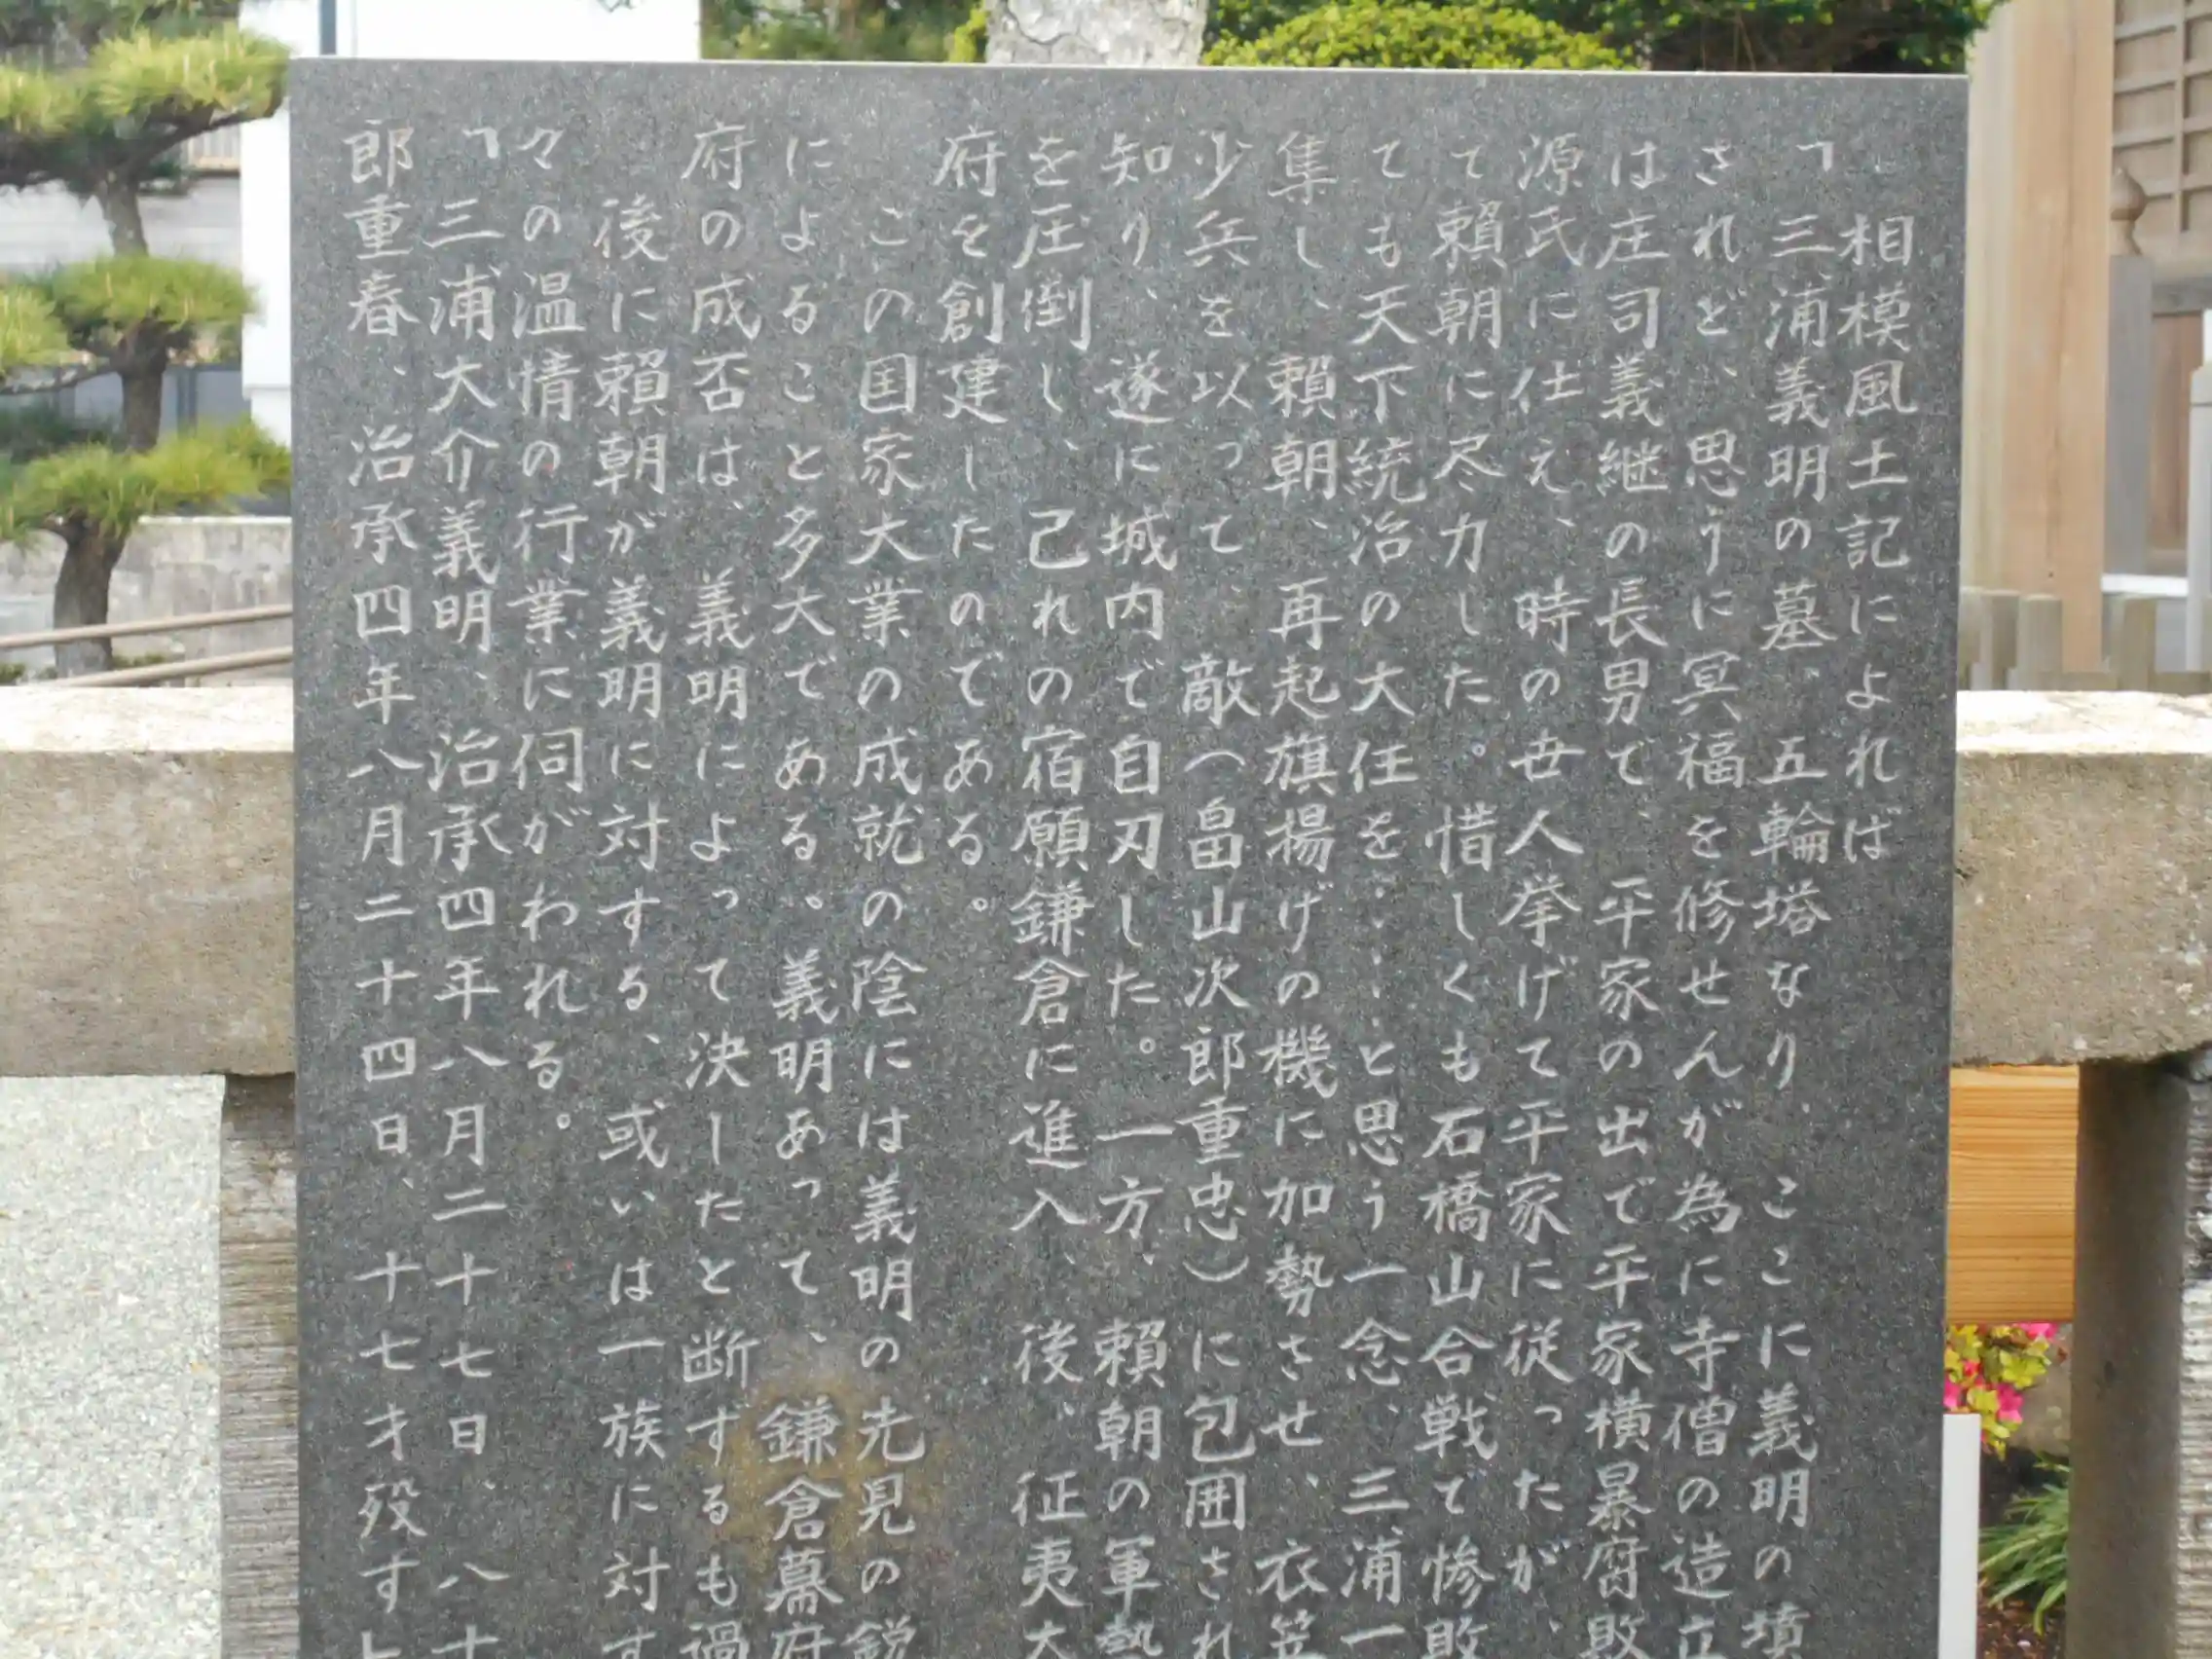 相模風土記によれば
「三浦義明の墓、五輪塔なり、ここに義明の墳
されど、思うに冥福を修せんが為に寺僧の造立
は庄司義継の長男で、平家の出で平家横暴腐敗
源氏に仕え、時の世人挙げて平家に従ったが、
て頼朝に尽力した。惜しくも石橋山合戦で惨敗
ても天下統治の大任を……と思う一念、三浦一
集し、頼朝、再起旗揚げの機に加勢させ、衣笠
少兵を以って、敵(畠山次郎重忠)に包囲され
知り、遂に城内で自刃した。一方、頼朝の軍勢
を圧倒し、己れの宿願鎌倉に進入、後、征夷大
府を創建したのである。
この国家大業の成就の陰には義明の先見の鋭
によること多大である。義明あって、鎌倉幕府
府の成否は、義明によって決したと断ずるも過
後に頼朝が義明に対する、或いは一族に対す
々の温情の行業に伺がわれる。
「三浦大介義明、治承四年八月二十七日、八十
郎重春、治承四年八月二十四日、十七才歿す」